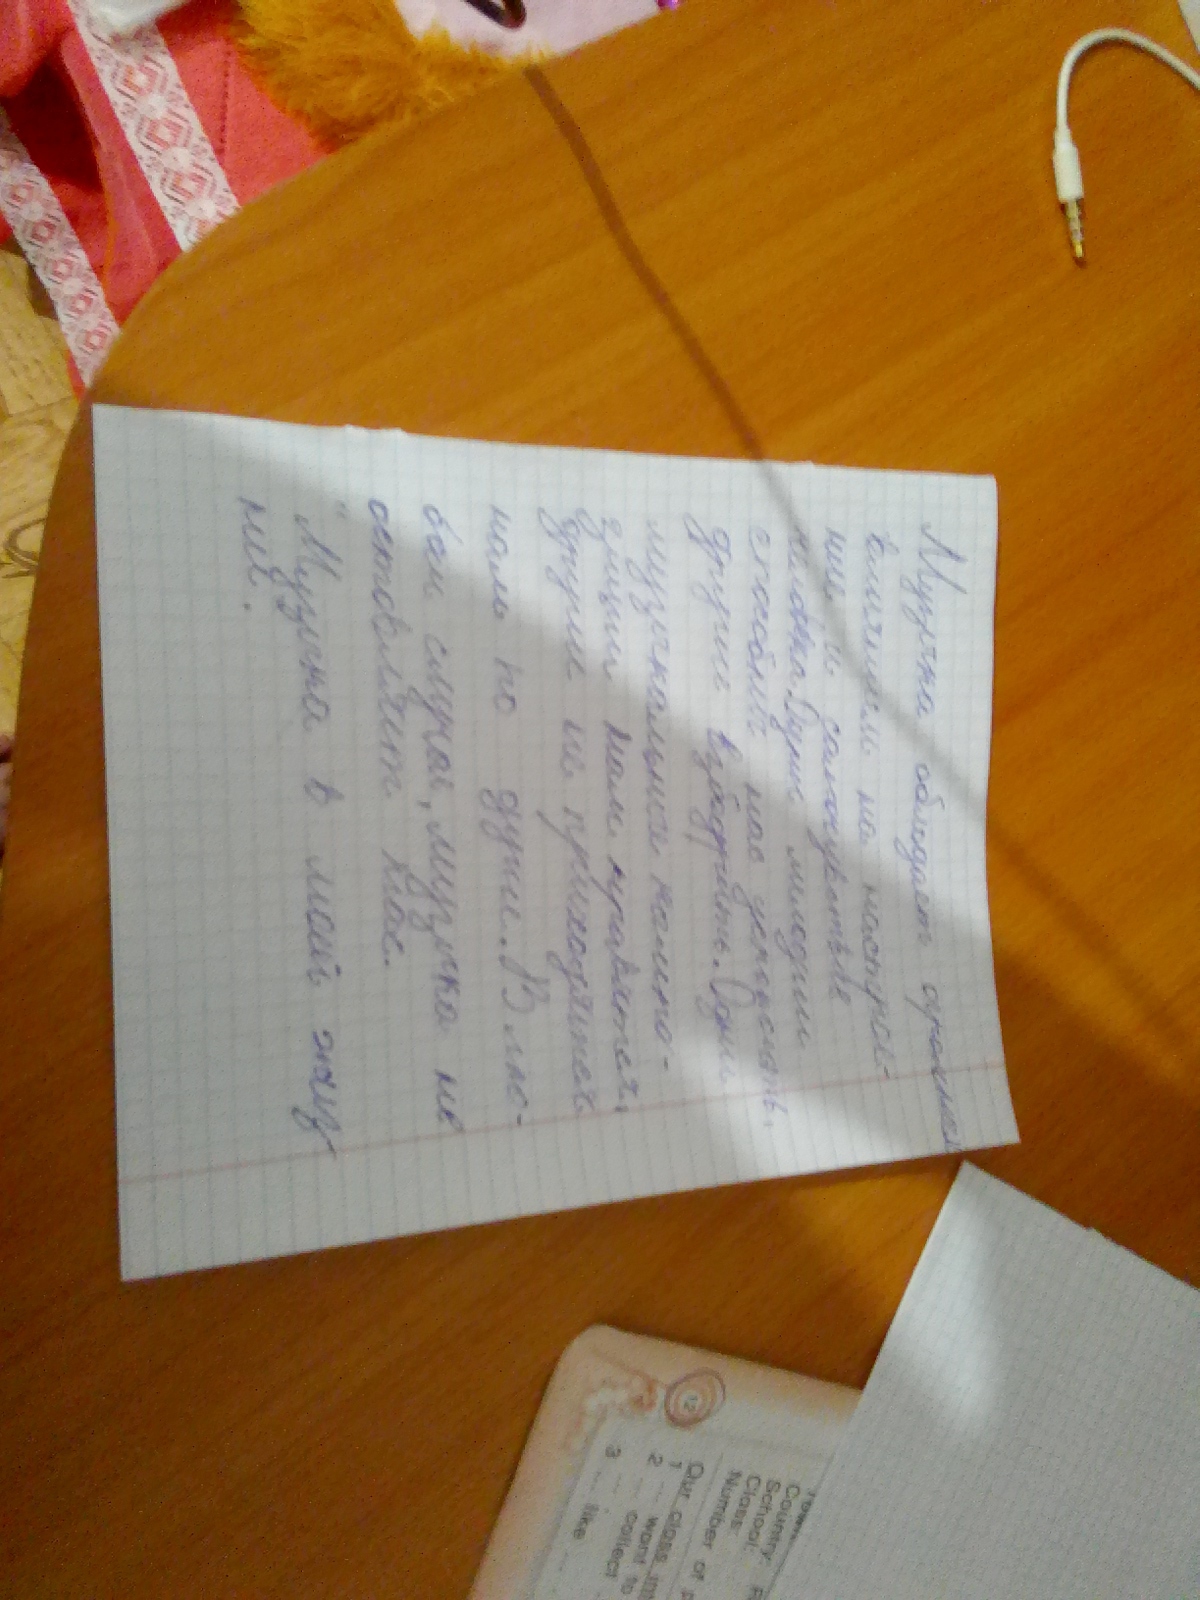 Музыка обладает огромнем
влиянием на настрое-
ние и самочувствие
человека. Одни мелодии
способны нас успокоить,
другие взбодрить. Одни
музыкальные компо-
зиции нам нравится,
другие не приходяться
нам по душе. В лю-
бом случае, музыка не
оставляет нас.
"Музыка в моей жиз
ни.
12
Country:
School:
Class:
Number of
Our class
1
2 ... want to
3 ... collect
... like